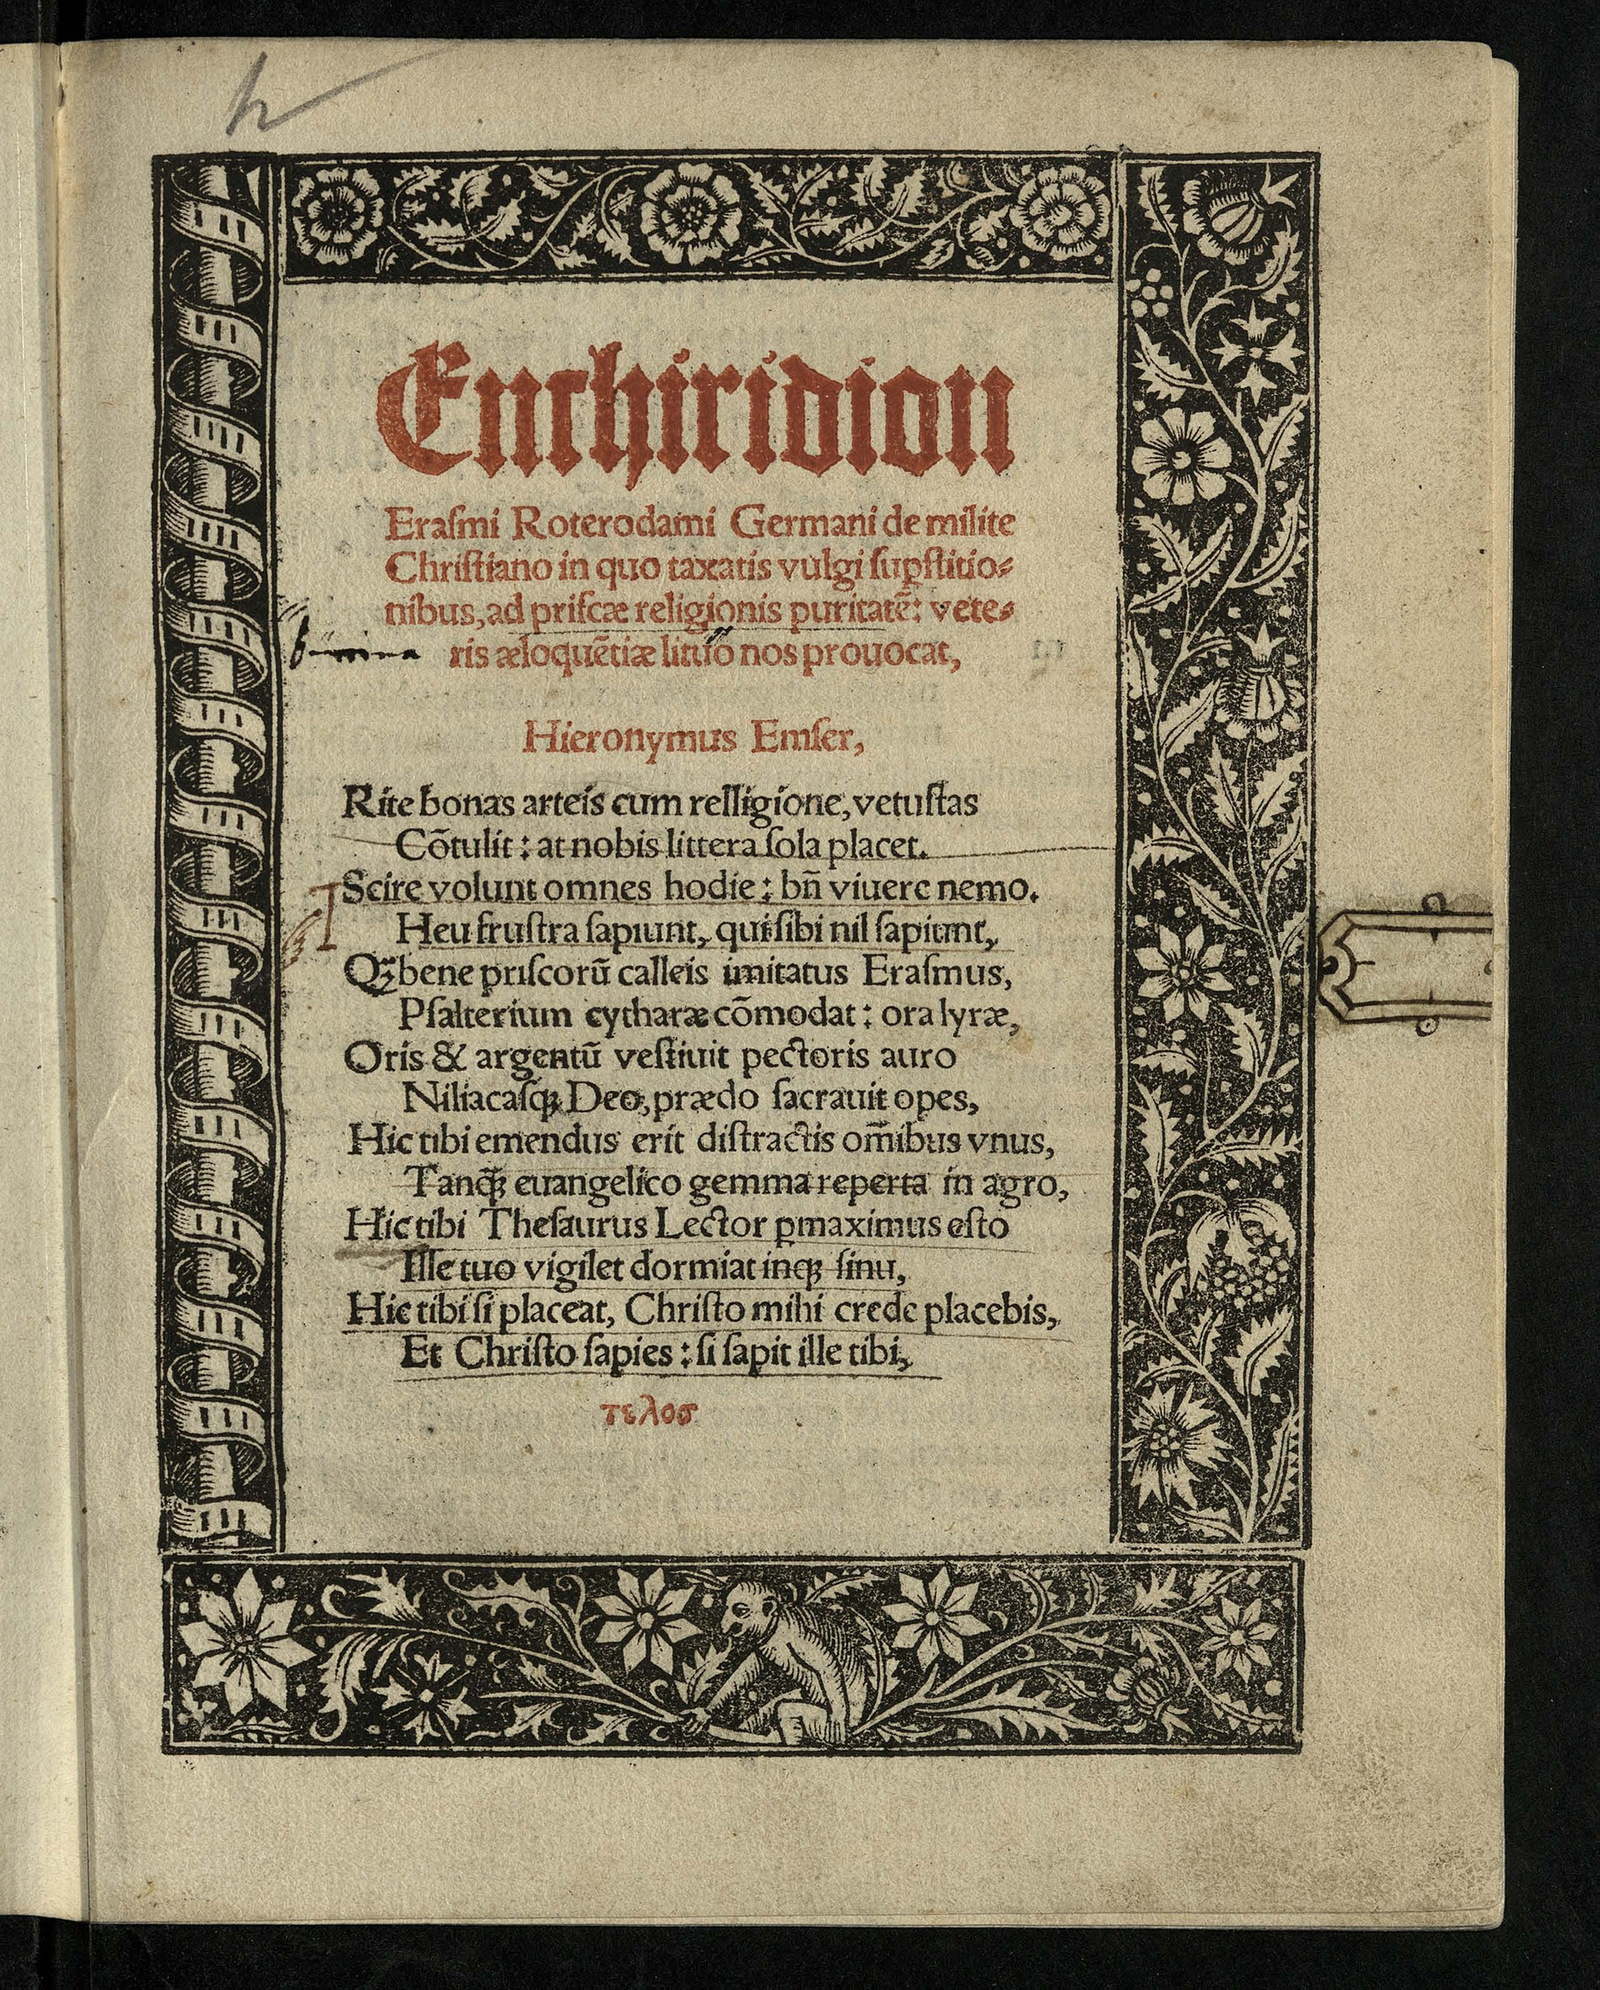 Enchiridion
Eraſmi Roterodami Germani de milite
Chriſtiano in quo taxatis vulgi ſup̱ſtitio⸗
nibus, ad priſcæ religionis puritatē: vete⸗
ris æloquētiæ lituo nos prouocat,
Hieronymus Emſer,
Rite bonas arteis cum relligione, vetuſtas
Cōtulit: at nobis littera ſola placet.
Scire volunt omnes hodie: bn̄ viuere nemo.
Heu fruſtra ſapiunt, qui ſibi nil ſapiunt,
Qꝫ̄ bene priſcorū calleis imitatus Eraſmus,
Pſalterium cytharæ cōmodat: ora lyræ,
Oris & argentū veſtiuit pectoris auro
Niliacaſqꝫ Deo, prædo ſacrauit opes,
Hic tibi emendus erit diſtractis om̄ibus vnus,
Tanqꝫ̄ euangelico gemma reperta in agro,
Hic tibi Theſaurus Lector ꝑmaximus eſto
Ille tuo vigilet dormiat inqꝫ ſinu,
Hic tibi ſi placeat, Chriſto mihi crede placebis,
Et Chriſto ſapies: ſi ſapit ille tibi,
τελοσ